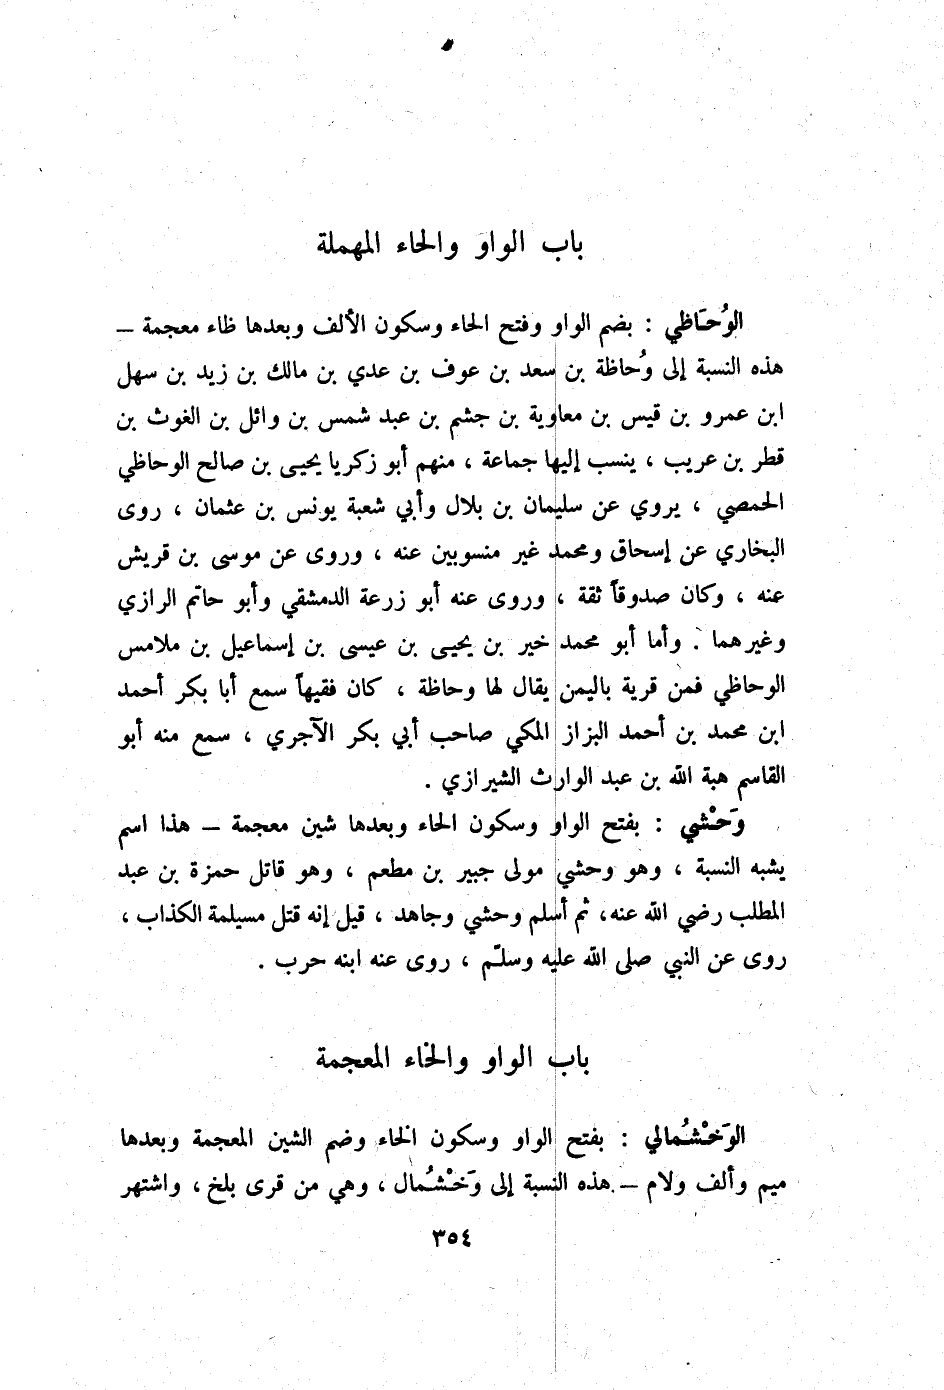 باب الواو والحاء المهملة
الوُحَاظي : بضم الواو وفتح الحاء وسكون الألف وبعدها ظاء معجمة –
هذه النسبة إلى وُحاظة بن سعد بن عوف بن عدي بن مالك بن زيد بن سهل
ابن عمرو بن قيس بن معاوية بن جشم بن عبد شمس بن وائل بن الغوث بن
قطر بن عريب ، ينسب إليها جماعة ، منهم أبو زكريا يحيى بن صالح الوحاظي
الحمصي ، يروي عن سليمان بن بلال وأبي شعبة يونس بن عثمان ، روى
البخاري عن إسحاق ومحمد غير منسوبين عنه ، وروى عن موسى بن قريش
عنه ، وكان صدوقاً ثقة ، وروى عنه أبو زرعة الدمشقي وأبو حاتم الرازي
وغيرهما . وأما أبو محمد خير بن يحيى بن عيسى بن إسماعيل بن ملامس
الوحاظي فمن قرية باليمن يقال لها وحاظة ، كان فقيهاً سمع أبا بكر أحمد
ابن محمد بن أحمد البزاز المكي صاحب أبي بكر الآجري ، سمع منه أبو
القاسم هبة الله بن عبد الوارث الشيرازي .
وَحْشي : بفتح الواو وسكون الحاء وبعدها شين معجمة – هذا اسم
يشبه النسبة ، وهو وحشي مولى جبير بن مطعم ، وهو قاتل حمزة بن عبد
المطلب رضي الله عنه، ثم أسلم وحشي وجاهد ، قيل إنه قتل مسيلمة الكذاب ،
روى عن النبي صلى الله عليه وسلّم ، روى عنه ابنه حرب .
باب الواو والخاء المعجمة
الوَخْشُمالي : بفتح الواو وسكون الخاء وضم الشين المعجمة وبعدها
ميم وألف ولام – هذه النسبة إلى وَخْشُمال ، وهي من قرى بلخ ، واشتهر
٣٥٤